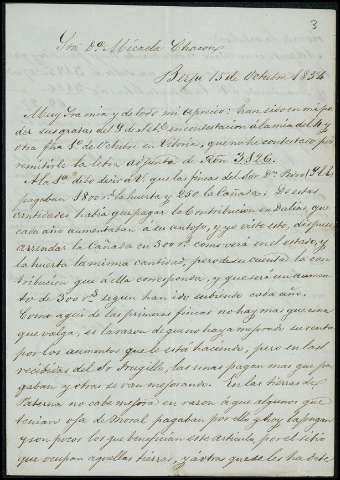 3
Sra. Dª. Micaela Chacon
Berja 15 de Octubre 1854
Muy Sra mia y de todo mi aprecio: han sido en mi po-
der sus gratas del 9 de
otra fha 1º. de Octubre en Vitoria, que no he contestado por
remitirle la letra adjunta de Rvn 2826.
A la 1ª. debo decir á V. que las fincas del Sor Dn.
pagaban 1800 rs. la huerta y 250 la Cañada. De estas
cantidades habia que pagar la Contribucion en Dalias, que
cada año aumentaban á su antojo, y yo visto esto, dispuse
arrendar la Cañada en 300 rs. como verá en el estado, y
la huerta la misma cantidad, pero de su cuenta la con-
tribucion que á ella corresponda, y que será un aumen-
to de 300 rs. segun han ido subiendo cada año.
Como aqui de las primeras fincas no hay mas que una
que valga, es la razon de que no haya mejorado su renta
por los aumentos que le está haciendo, pero en las
recibidas del Sr Trugillo, las unas pagan mas que pa-
gaban y otras se van mejorando. En las tierras de
Paterna no cabe mejora en razon á que algunos que
tenian oja de Moral pagaban por ella y hoy la pagan
y son pocos los que benefician este articulo por el sitio
que ocupan aquellas tierras, y á otras que se les ha